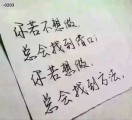 -0203
你若不想做,
总会找到借口;
你若想做,
总会找到方法。